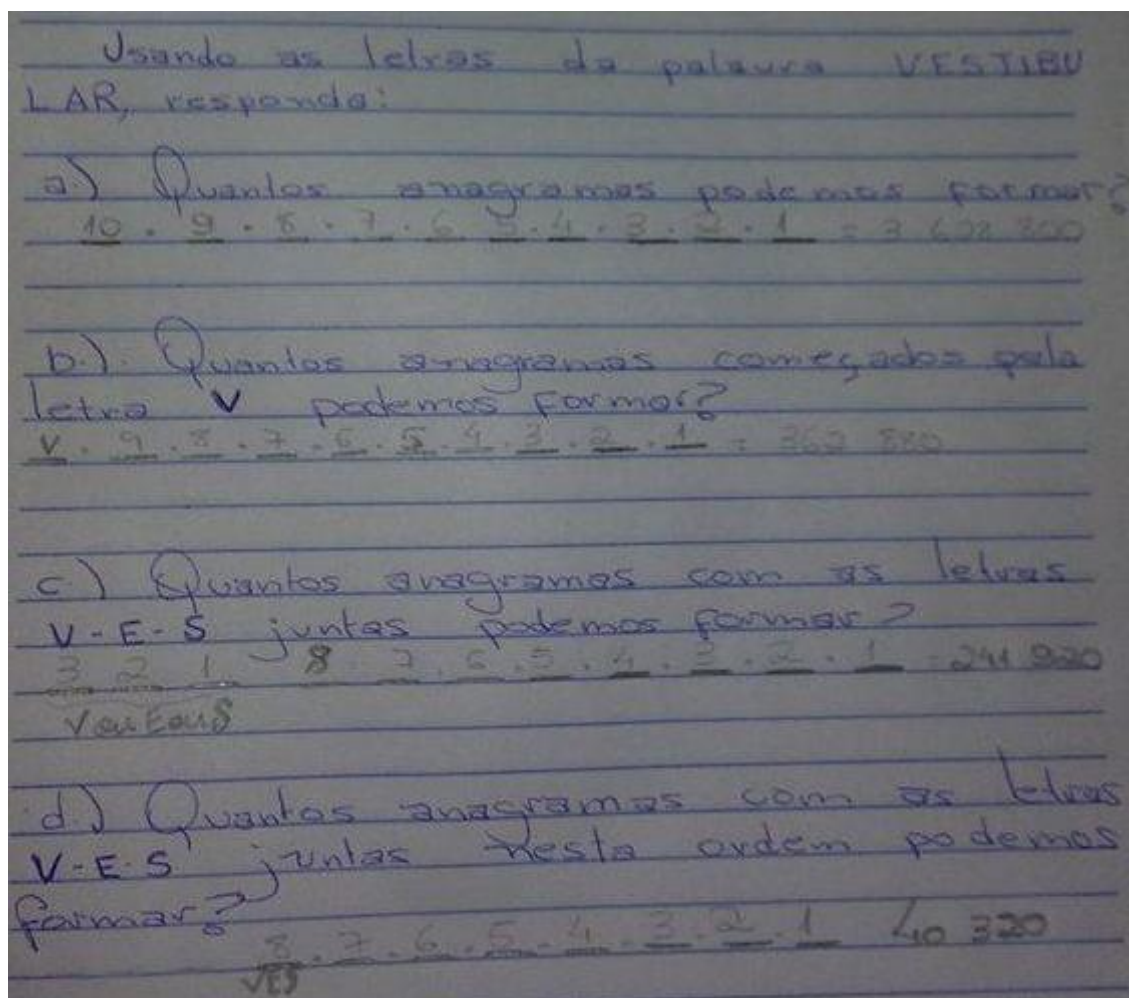 Usando as letras da palavra VESTIBU
LAR, responda:
a) Quantos anagramas podemos formar?
10 . 9 . 8 . 7 . 6 5 . 4 . 3 . 2 . 1 = 3 628 800
b.) Quantos anagramas começados pela
letra V podemos formar?
V . 9 . 8 . 7 . 6 . 5 . 4 . 3 . 2 . 1 = 362 880
c) Quantos anagramas com as letras
V-E-S juntas podemos formar?
3 2 1 8 . 7 . 6 . 5 . 4 . 3 . 2 . 1 = 241 920
V ou E ou S
d) Quantos anagramas com as letras
V-E-S juntas nesta ordem podemos
formar?
8 . 7 . 6 . 5 . 4 . 3 . 2 . 1 40 320
VES